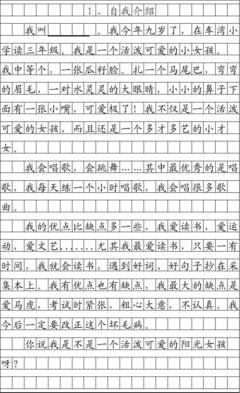 1、自我介绍
我叫________。我今年九岁了，在车湾小
学读三年级。我是一个活泼可爱的小女孩。
我中等个，一张瓜籽脸。扎一个马尾巴，弯弯
的眉毛，一对水灵灵的大眼睛，小小的鼻子下
面有一张小嘴，可爱极了！我不仅是一个活泼
可爱的女孩，而且还是一个多才多艺的小才
女。
我会唱歌，会跳舞……其中最优秀的是唱
歌，我每天练一个小时唱歌，我会唱很多歌
曲。
我的优点比缺点多一些，我爱读书，爱运
动，爱文艺.......尤其我最爱读书，只要一有
时间，我就会读书。遇到好词、好句子抄在采
集本上。我有优点也有缺点，我最大的缺点是
爱马虎，考试时紧张，粗心大意，不认真。我
今后一定要改正这个坏毛病。
你说我是不是一个活泼可爱的阳光女孩
呀？